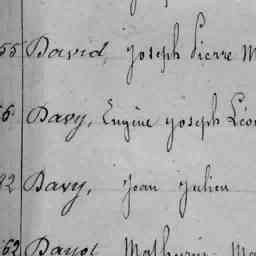 55 David, Joseph Pierre M
6 Davy, Eugène Joseph Léon
92 Davy, Jean Julien
62 Dayot Mathurin Ma